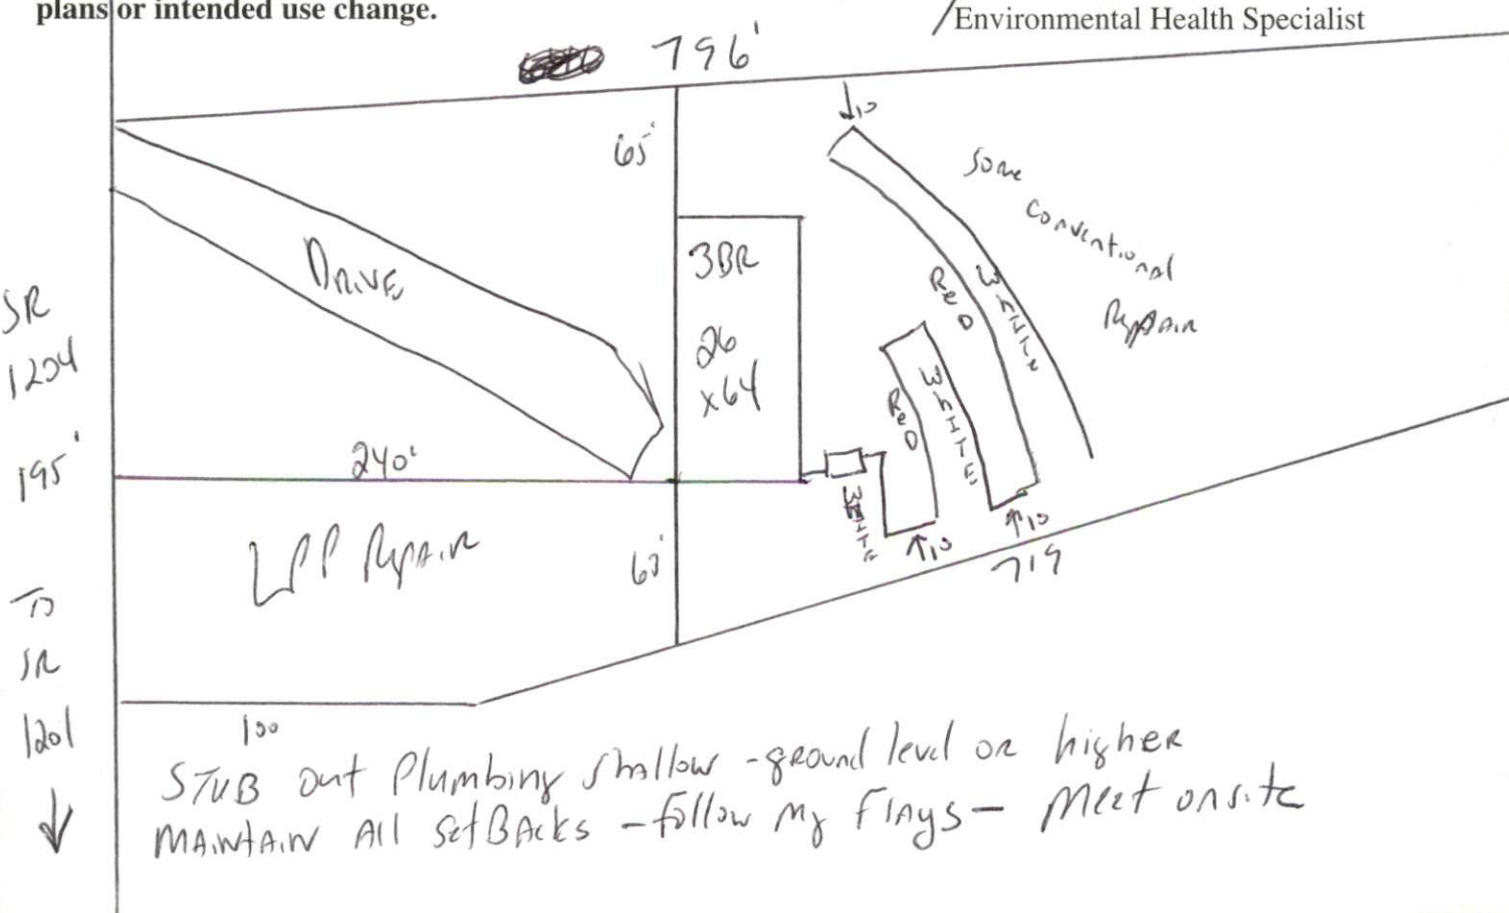 plans or intended use change.
Environmental Health Specialist
796'
65'
↓10
Some
conventional
Repair
DRIVE
3BR
26
x64
RED
WHITE
RED
WHITE
SR
1204
195'
TO
SR
1201
↓
240'
LPP Repair
63'
WHITE
↑10
↑10
719
100
STUB out Plumbing shallow - ground level or higher
MAINTAIN All SetBAcks - follow my Flags - Meet onsite